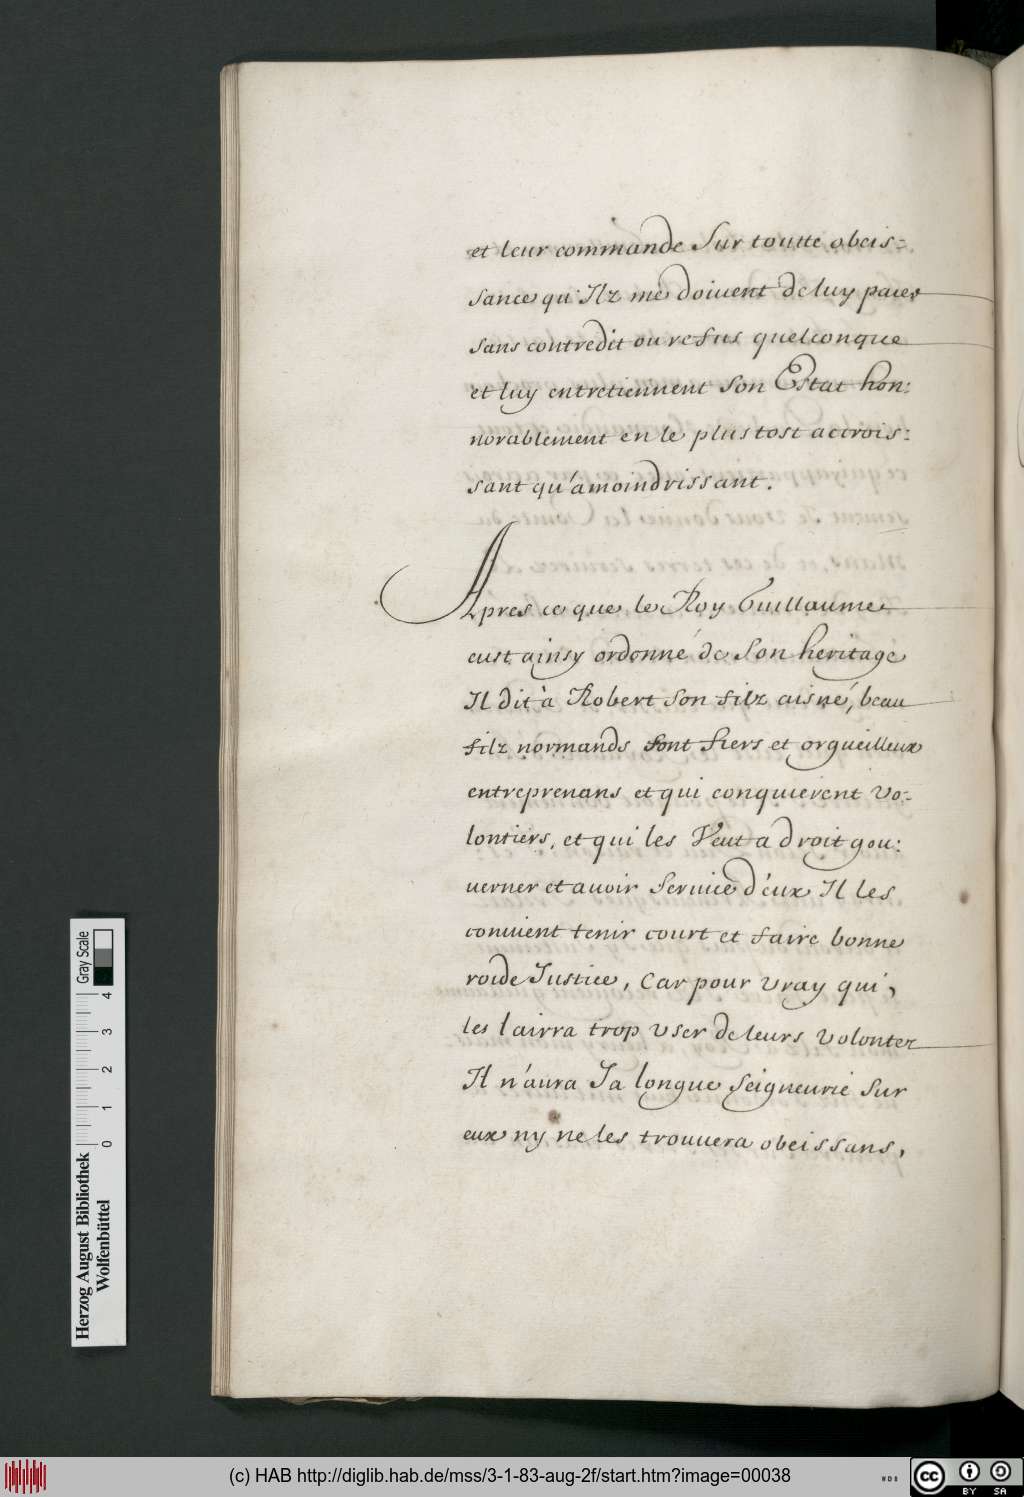 et leur commande sur toutte obeis=
sance qu'Ilz me doivent de luy paier
sans contredit ou refus quelconque
et luy entretiennent son Estat hon:
norablement en le plustost accrois:
sant qu'amoindrissant.
Apres ce que le Roy Guillaume
eust ainsy ordonné de son heritage
Il dit à Robert son filz aisné, beau
filz normands sont fiers et orgueilleux
entreprenans et qui conquierent vo=
lontiers, et qui les Veut a droit gou:
uerner et auoir seruice d'eux Il les
conuient tenir court et faire bonne
roide Iustice, Car pour vray qui,
les lairra trop vser de leurs volontez
Il n'aura Ja longue seigneurie sur
eux ny ne les trouuera obeissans,
Herzog August Bibliothek
Wolfenbüttel
0 1 2 3 4
Gray Scale
(c) HAB http://diglib.hab.de/mss/3-1-83-aug-2f/start.htm?image=00038
WDB
cc BY SA